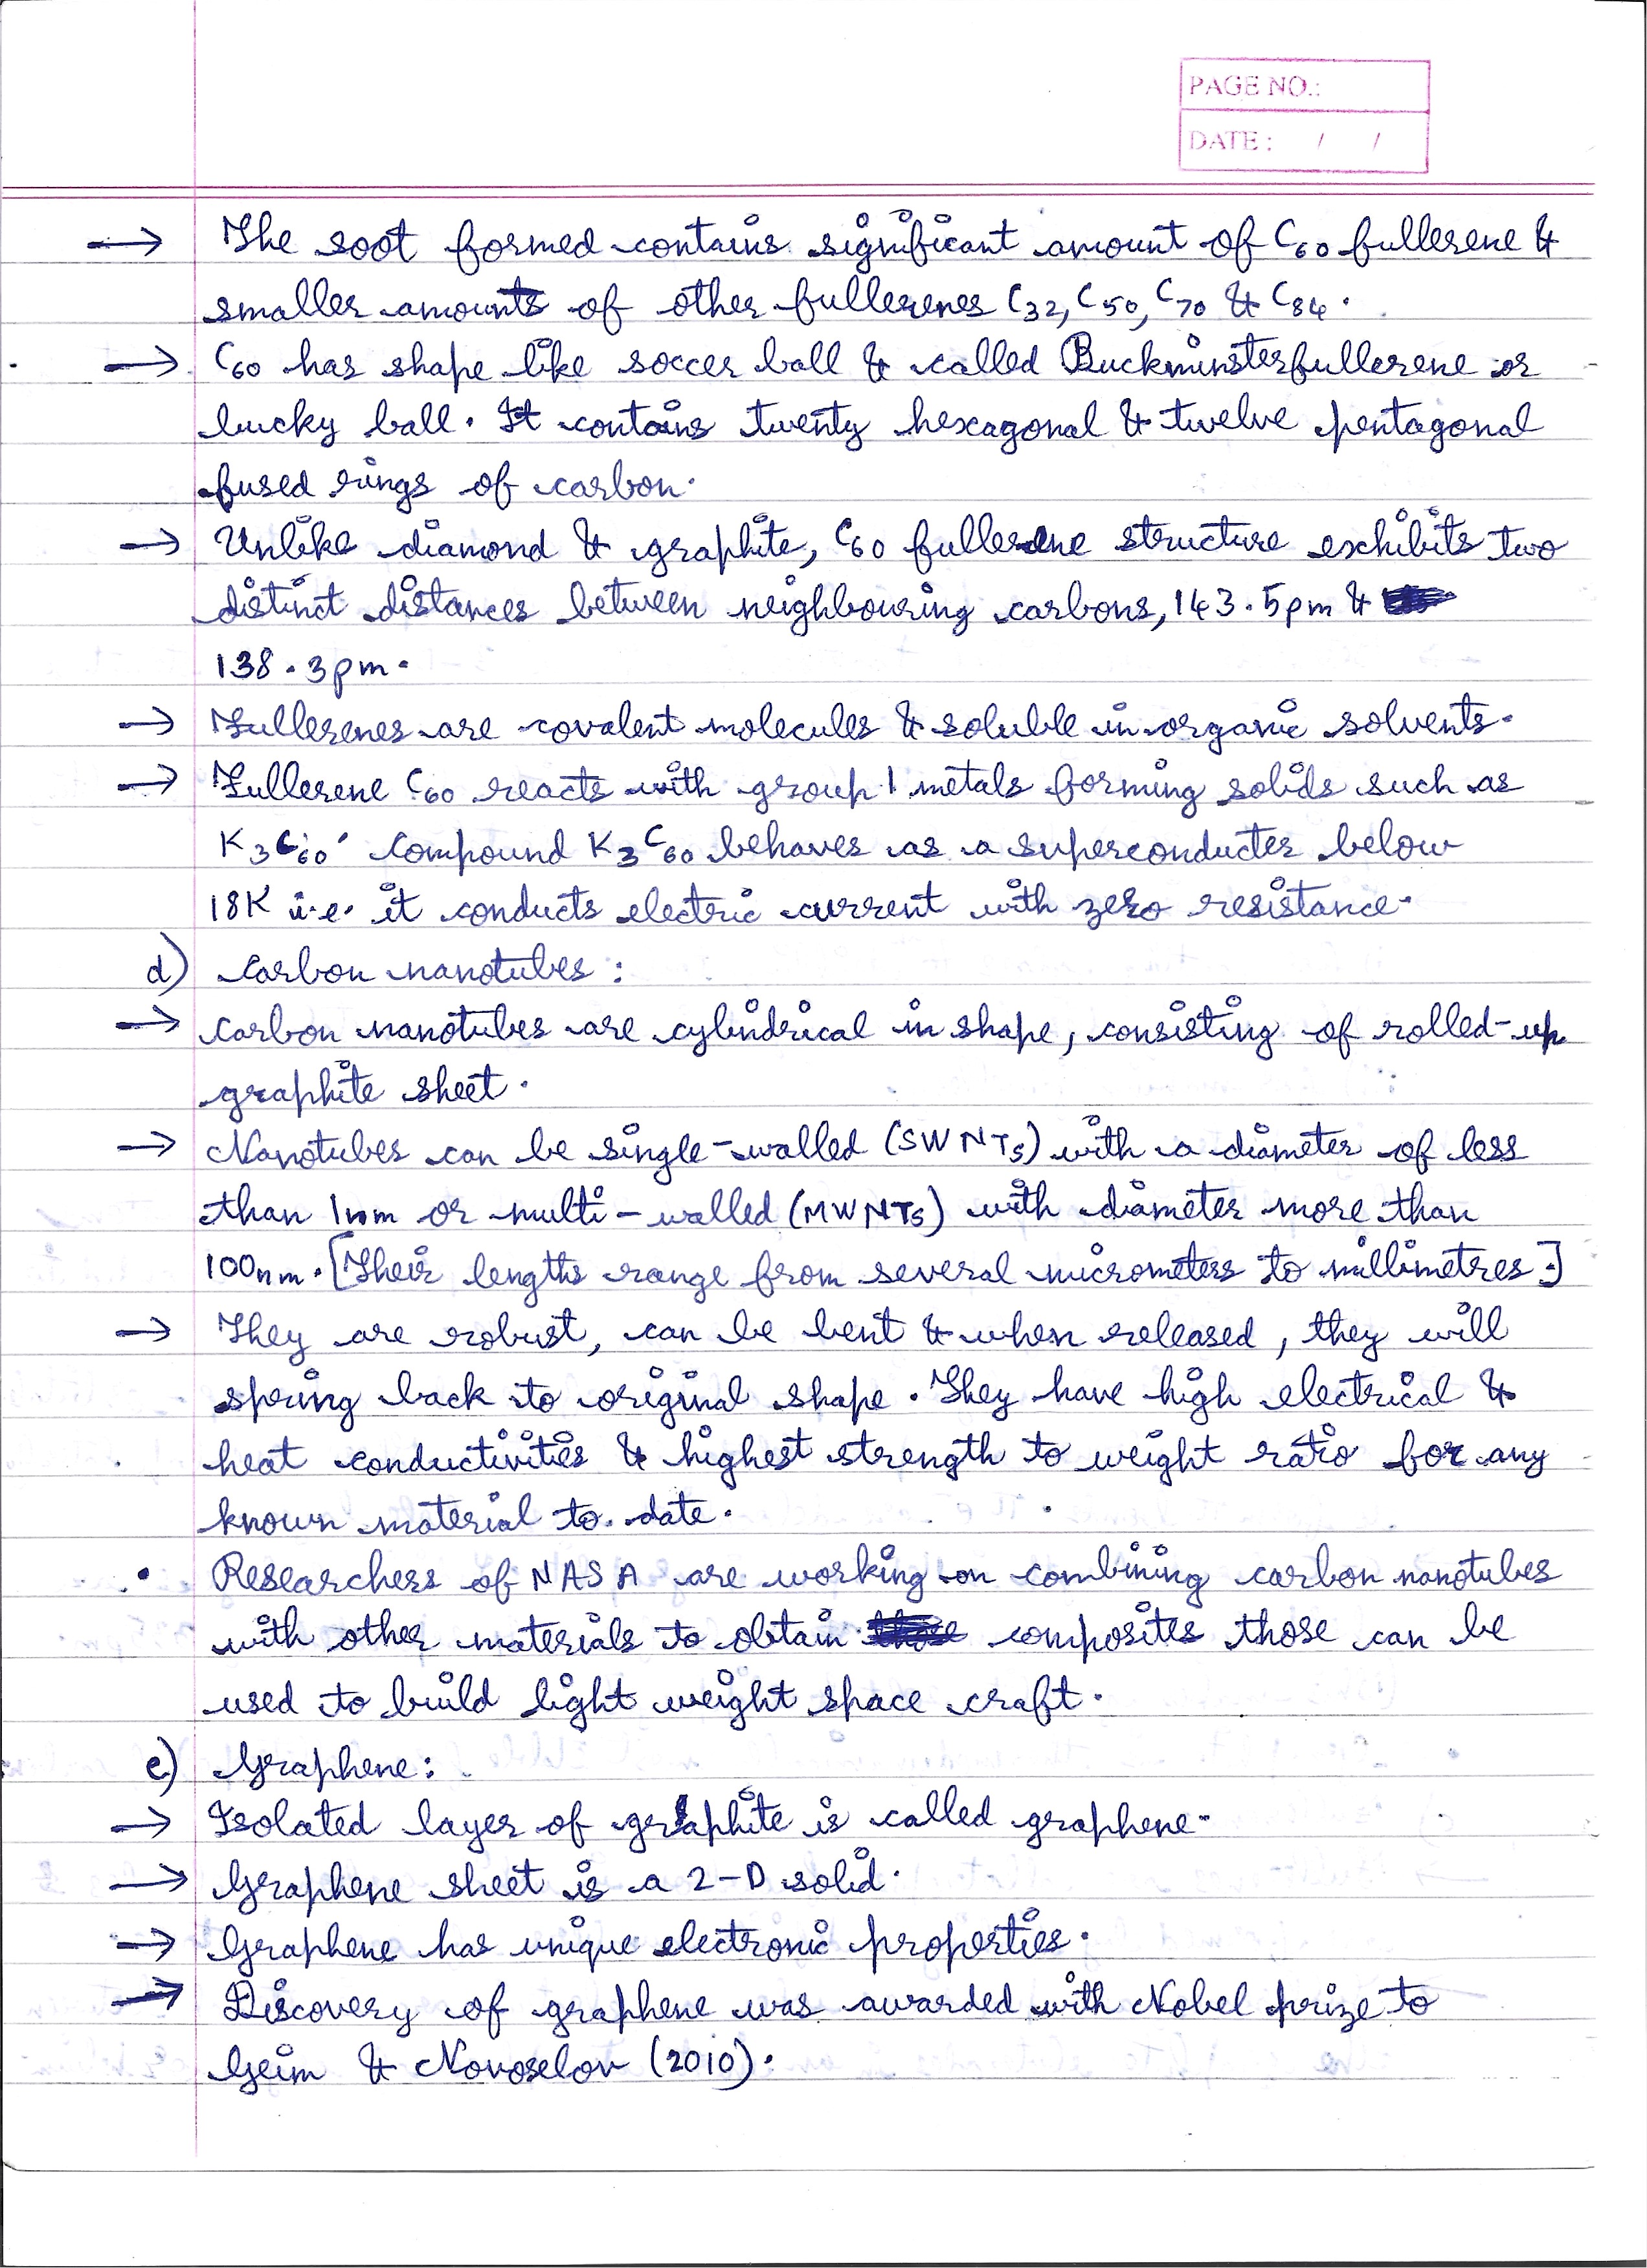 PAGE NO.:
DATE : / /
→ The soot formed contains significant amount of C₆₀ fullerene &
smaller amounts of other fullerenes C₃₂, C₅₀, C₇₀ & C₈₄.
→ C₆₀ has shape like soccer ball & called Buckminsterfullerene or
bucky ball. It contains twenty hexagonal & twelve pentagonal
fused rings of carbon.
→ Unlike diamond & graphite, C₆₀ fullerene structure exhibits two
distinct distances between neighbouring carbons, 143.5pm &
138.3pm.
→ Fullerenes are covalent molecules & soluble in organic solvents.
→ Fullerene C₆₀ reacts with group 1 metals forming solids such as
K₃C₆₀. Compound K₃C₆₀ behaves as a superconducter below
18K i.e. it conducts electric current with zero resistance.
d) Carbon nanotubes :
→ Carbon nanotubes are cylindrical in shape, consisting of rolled-up
graphite sheet.
→ Nanotubes can be single-walled (SWNTs) with a diameter of less
than 1nm or multi-walled (MWNTs) with diameter more than
100nm. [Their lengths range from several micrometers to millimetres.]
→ They are robust, can be bent & when released, they will
spring back to original shape. They have high electrical &
heat conductivities & highest strength to weight ratio for any
known material to date.
• Researchers of NASA are working on combining carbon nanotubes
with other materials to obtain composites those can be
used to build light weight space craft.
e) Graphene :
→ Isolated layer of graphite is called graphene.
→ Graphene sheet is a 2-D solid.
→ Graphene has unique electronic properties.
→ Discovery of graphene was awarded with Nobel prize to
Geim & Novoselov (2010).